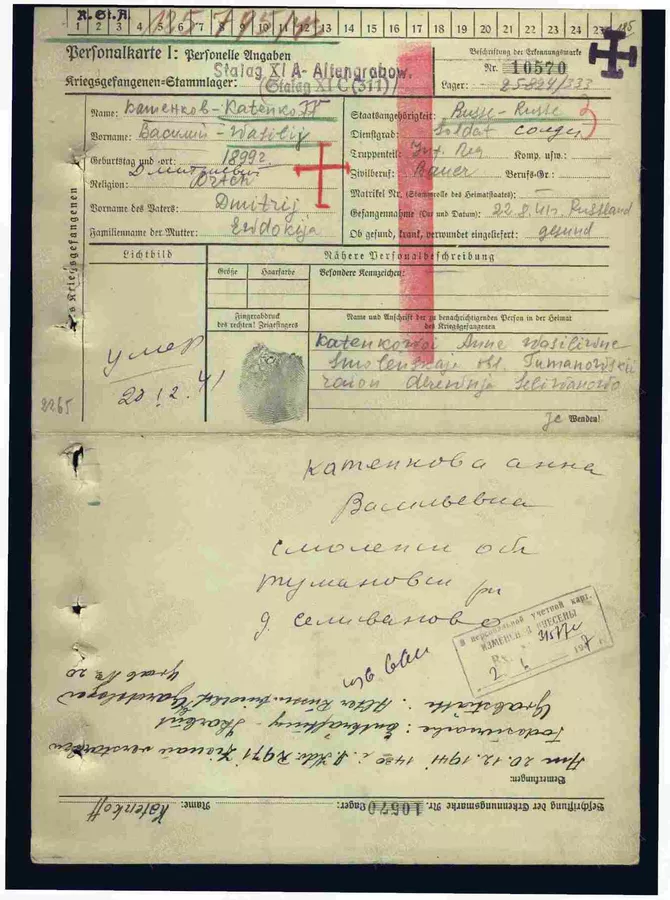 R. St. A.
1 2 3 4 5 6 7 8 9 10 11 12 13 14 15 16 17 18 19 20 21 22 23 24 25
Personalkarte I: Personelle Angaben
Kriegsgefangenen-Stammlager:
Stalag XI A - Altengrabow.
(Stalag XI C (311)
Beschriftung der Erkennungsmarke
Nr. 10570
Lager:
Name: Катенков - Katenkoff
Vorname: Василий - Wasilij
Geburtstag und -ort: 1899г.
Дмитриевич
Religion:
Vorname des Vaters: Dmitrij
Familienname der Mutter: Ewdokija
Staatsangehörigkeit: Russe - Russe
Dienstgrad: Soldat солдат
Truppenteil: Inf. Reg Komp. usw.:
Zivilberuf: Bauer Berufs-Gr.:
Matrikel Nr. (Stammrolle des Heimatstaates): —
Gefangennahme (Ort und Datum): 22.8.41r. Russland
Ob gesund, krank, verwundet eingeliefert: gesund
des Kriegsgefangenen
Lichtbild
Nähere Personalbeschreibung
Größe Haarfarbe Besondere Kennzeichen:
Fingerabdruck
des rechten! Zeigefingers
Name und Anschrift der zu benachrichtigenden Person in der Heimat
des Kriegsgefangenen
Katenkowoi Anne Wasiliwne
Smolenskaje obl. Tumanowskii
raion derewnja Seliwanowo
умер
20 12 41
2265
Wenden!
Катенкова анна
Васильевна
смоленск обл
тумановск рн
д. селиваново
В персональной учетной карт.
ИЗМЕНЕНИЯ ВНЕСЕНЫ
Bemerkungen:
Am 20.12.1941 14 00 i. verstorben
Todesursache: Entkräftung -
Grabstätte: Alter Gardelegen
Grab Nr. 20
Beschriftung der Erkennungsmarke Nr. 10570 Lager: Name: Katenkoff